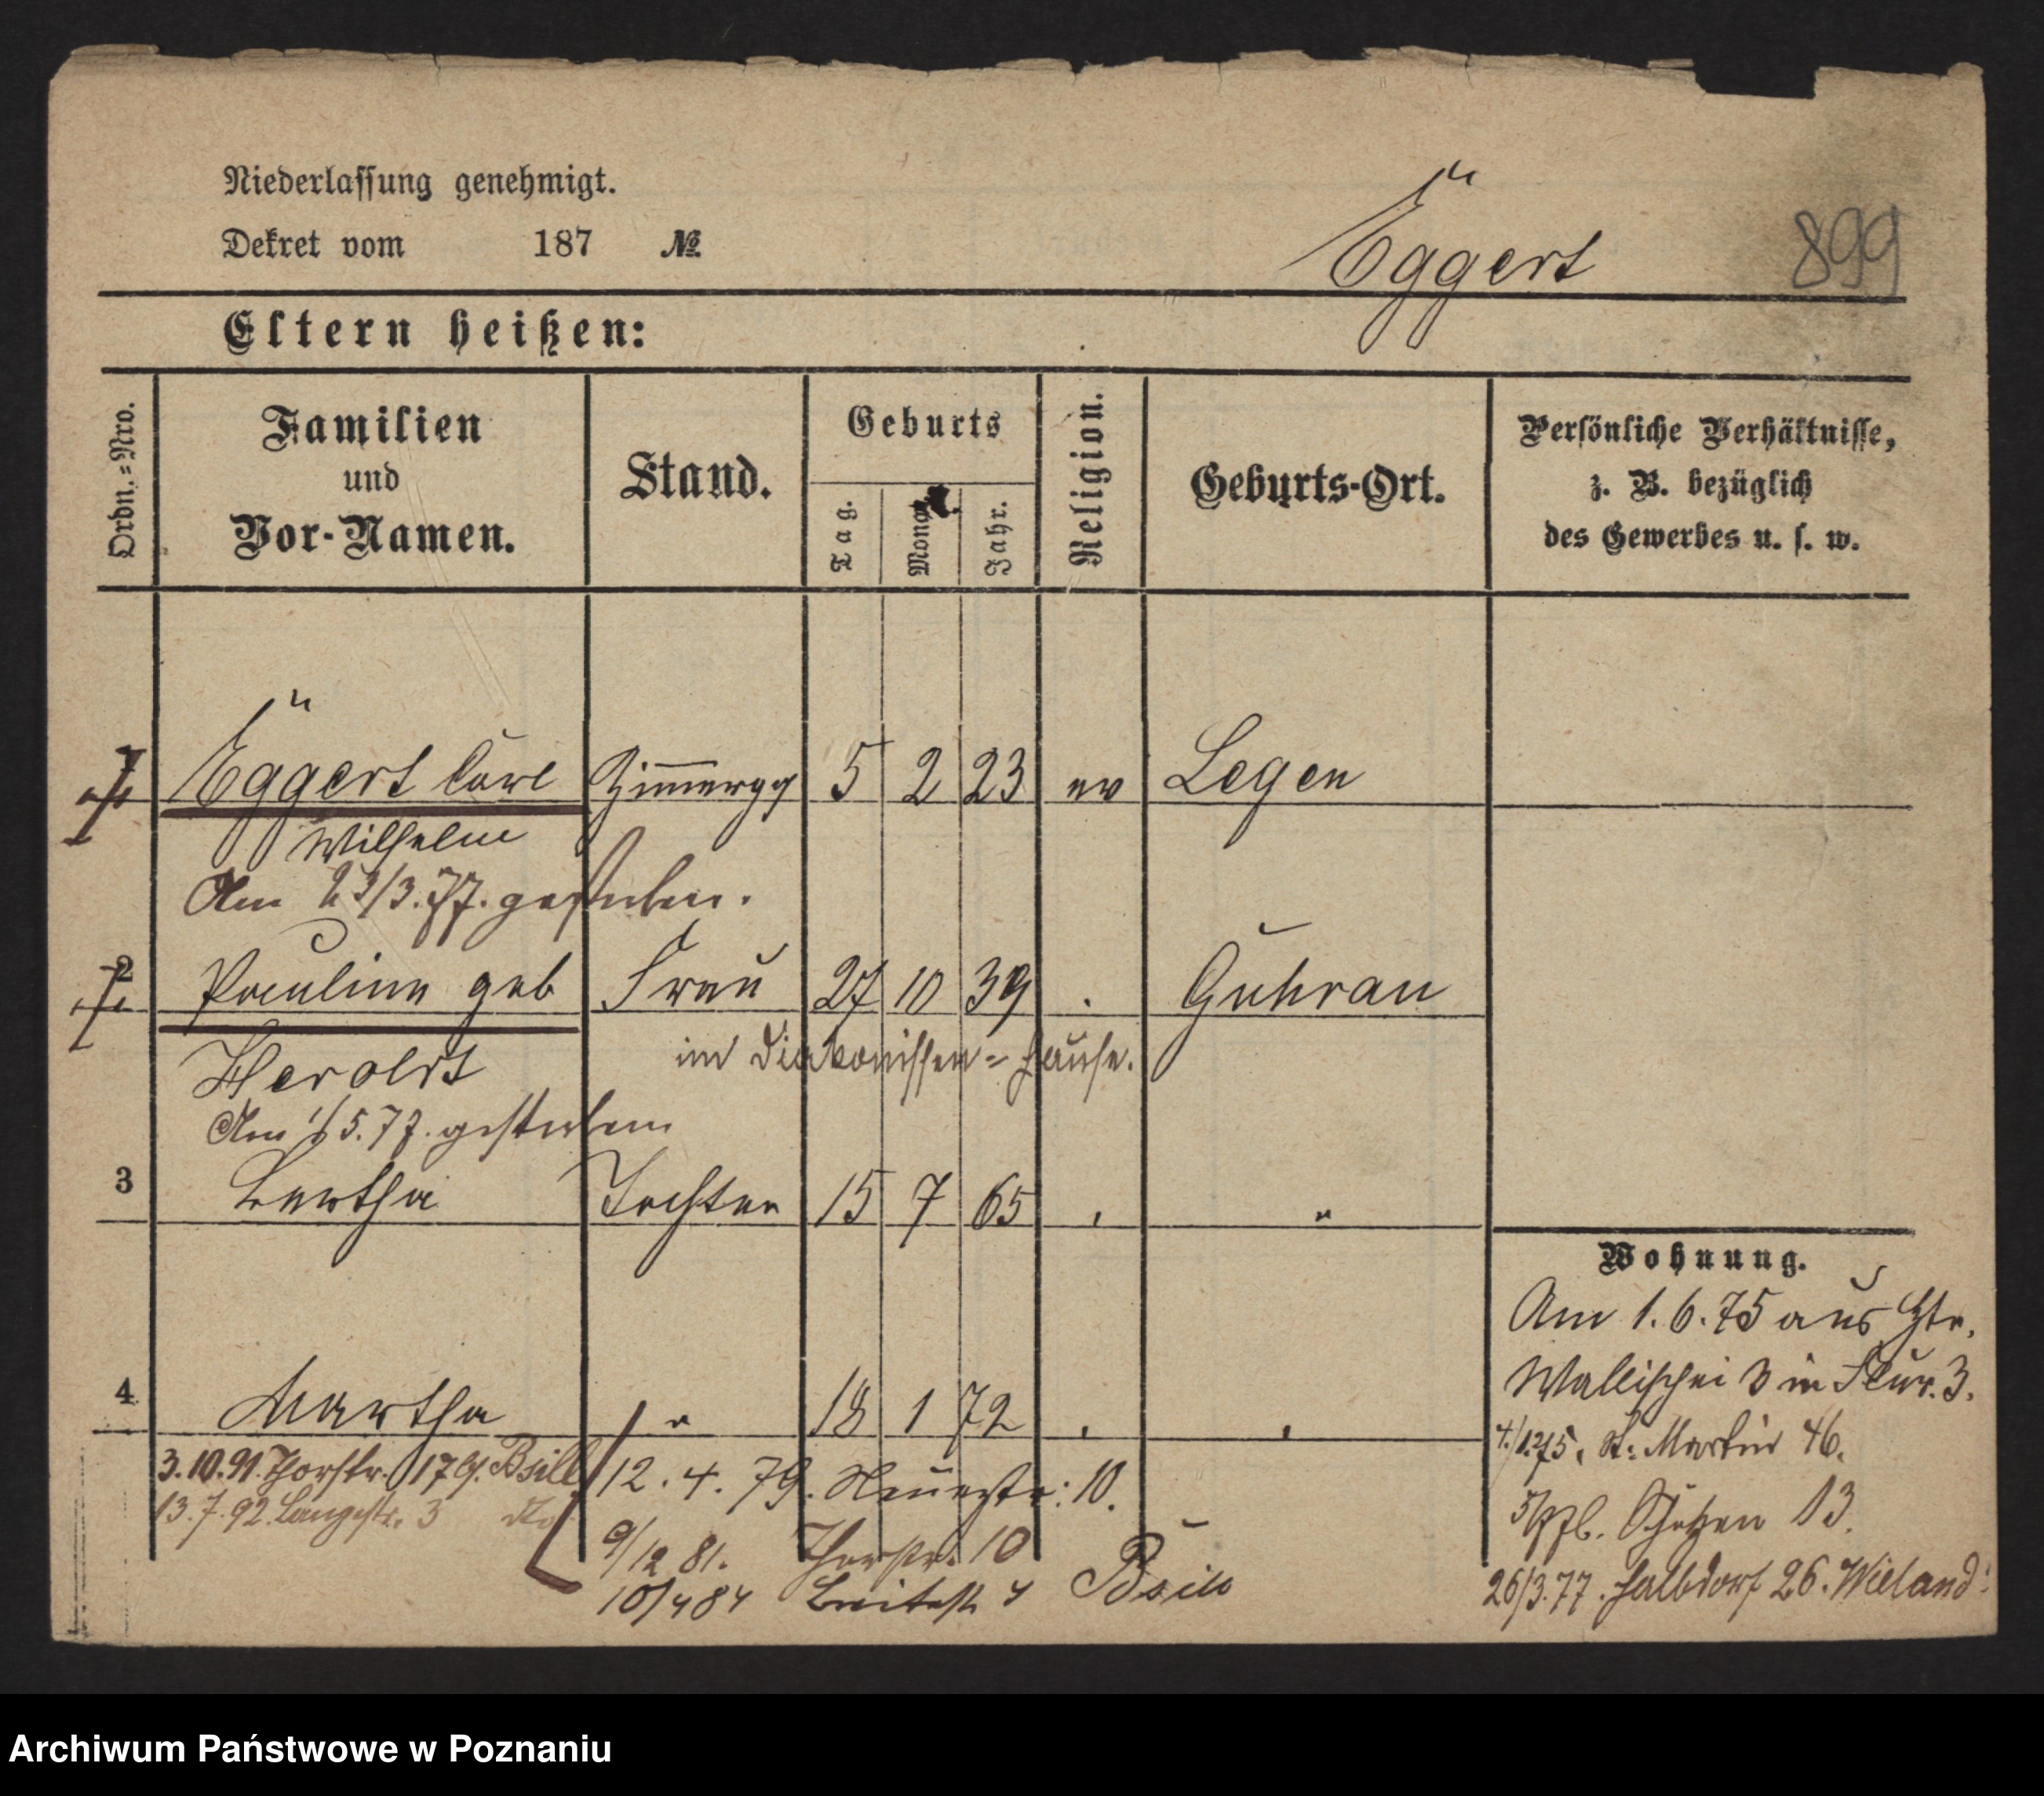 Niederlassung genehmigt.
Dekret vom 187 №
Eggert
899
Eltern heißen:
Ordn.-Nro.
Familien und Vor-Namen.
Stand.
Geburts
Tag.
Monat
Jahr.
Religion.
Geburts-Ort.
Persönliche Verhältnisse,
z. B. bezüglich
des Gewerbes u. s. w.
1 Eggert Carl Zimmerges 5 2 23 ev Legen
Wilhelm
Am 23/3.77. gestorben.
2 Pauline geb Frau 27 10 39 Guhrau
Heroldt im Diakonissen-Hause.
Am 1/5.77. gestorben
3 Bertha Tochter 15 7 65 "
4 Martha " 18 1 72
Wohnung.
Am 1.6.75 aus Htr.
Wallischei 3 in Flur. 3.
4/12 75. St: Martin 46.
Schützen 13.
26/3.77. Halbdorf 26. Wieland
3.10.91. Thorstr. 17 b. Bsill
13.7.92. Langestr. 3 do
12.4.79. Neuestr: 10.
9/12 81. Thorstr. 10
10/4 84 Breitestr 4
Archiwum Państwowe w Poznaniu